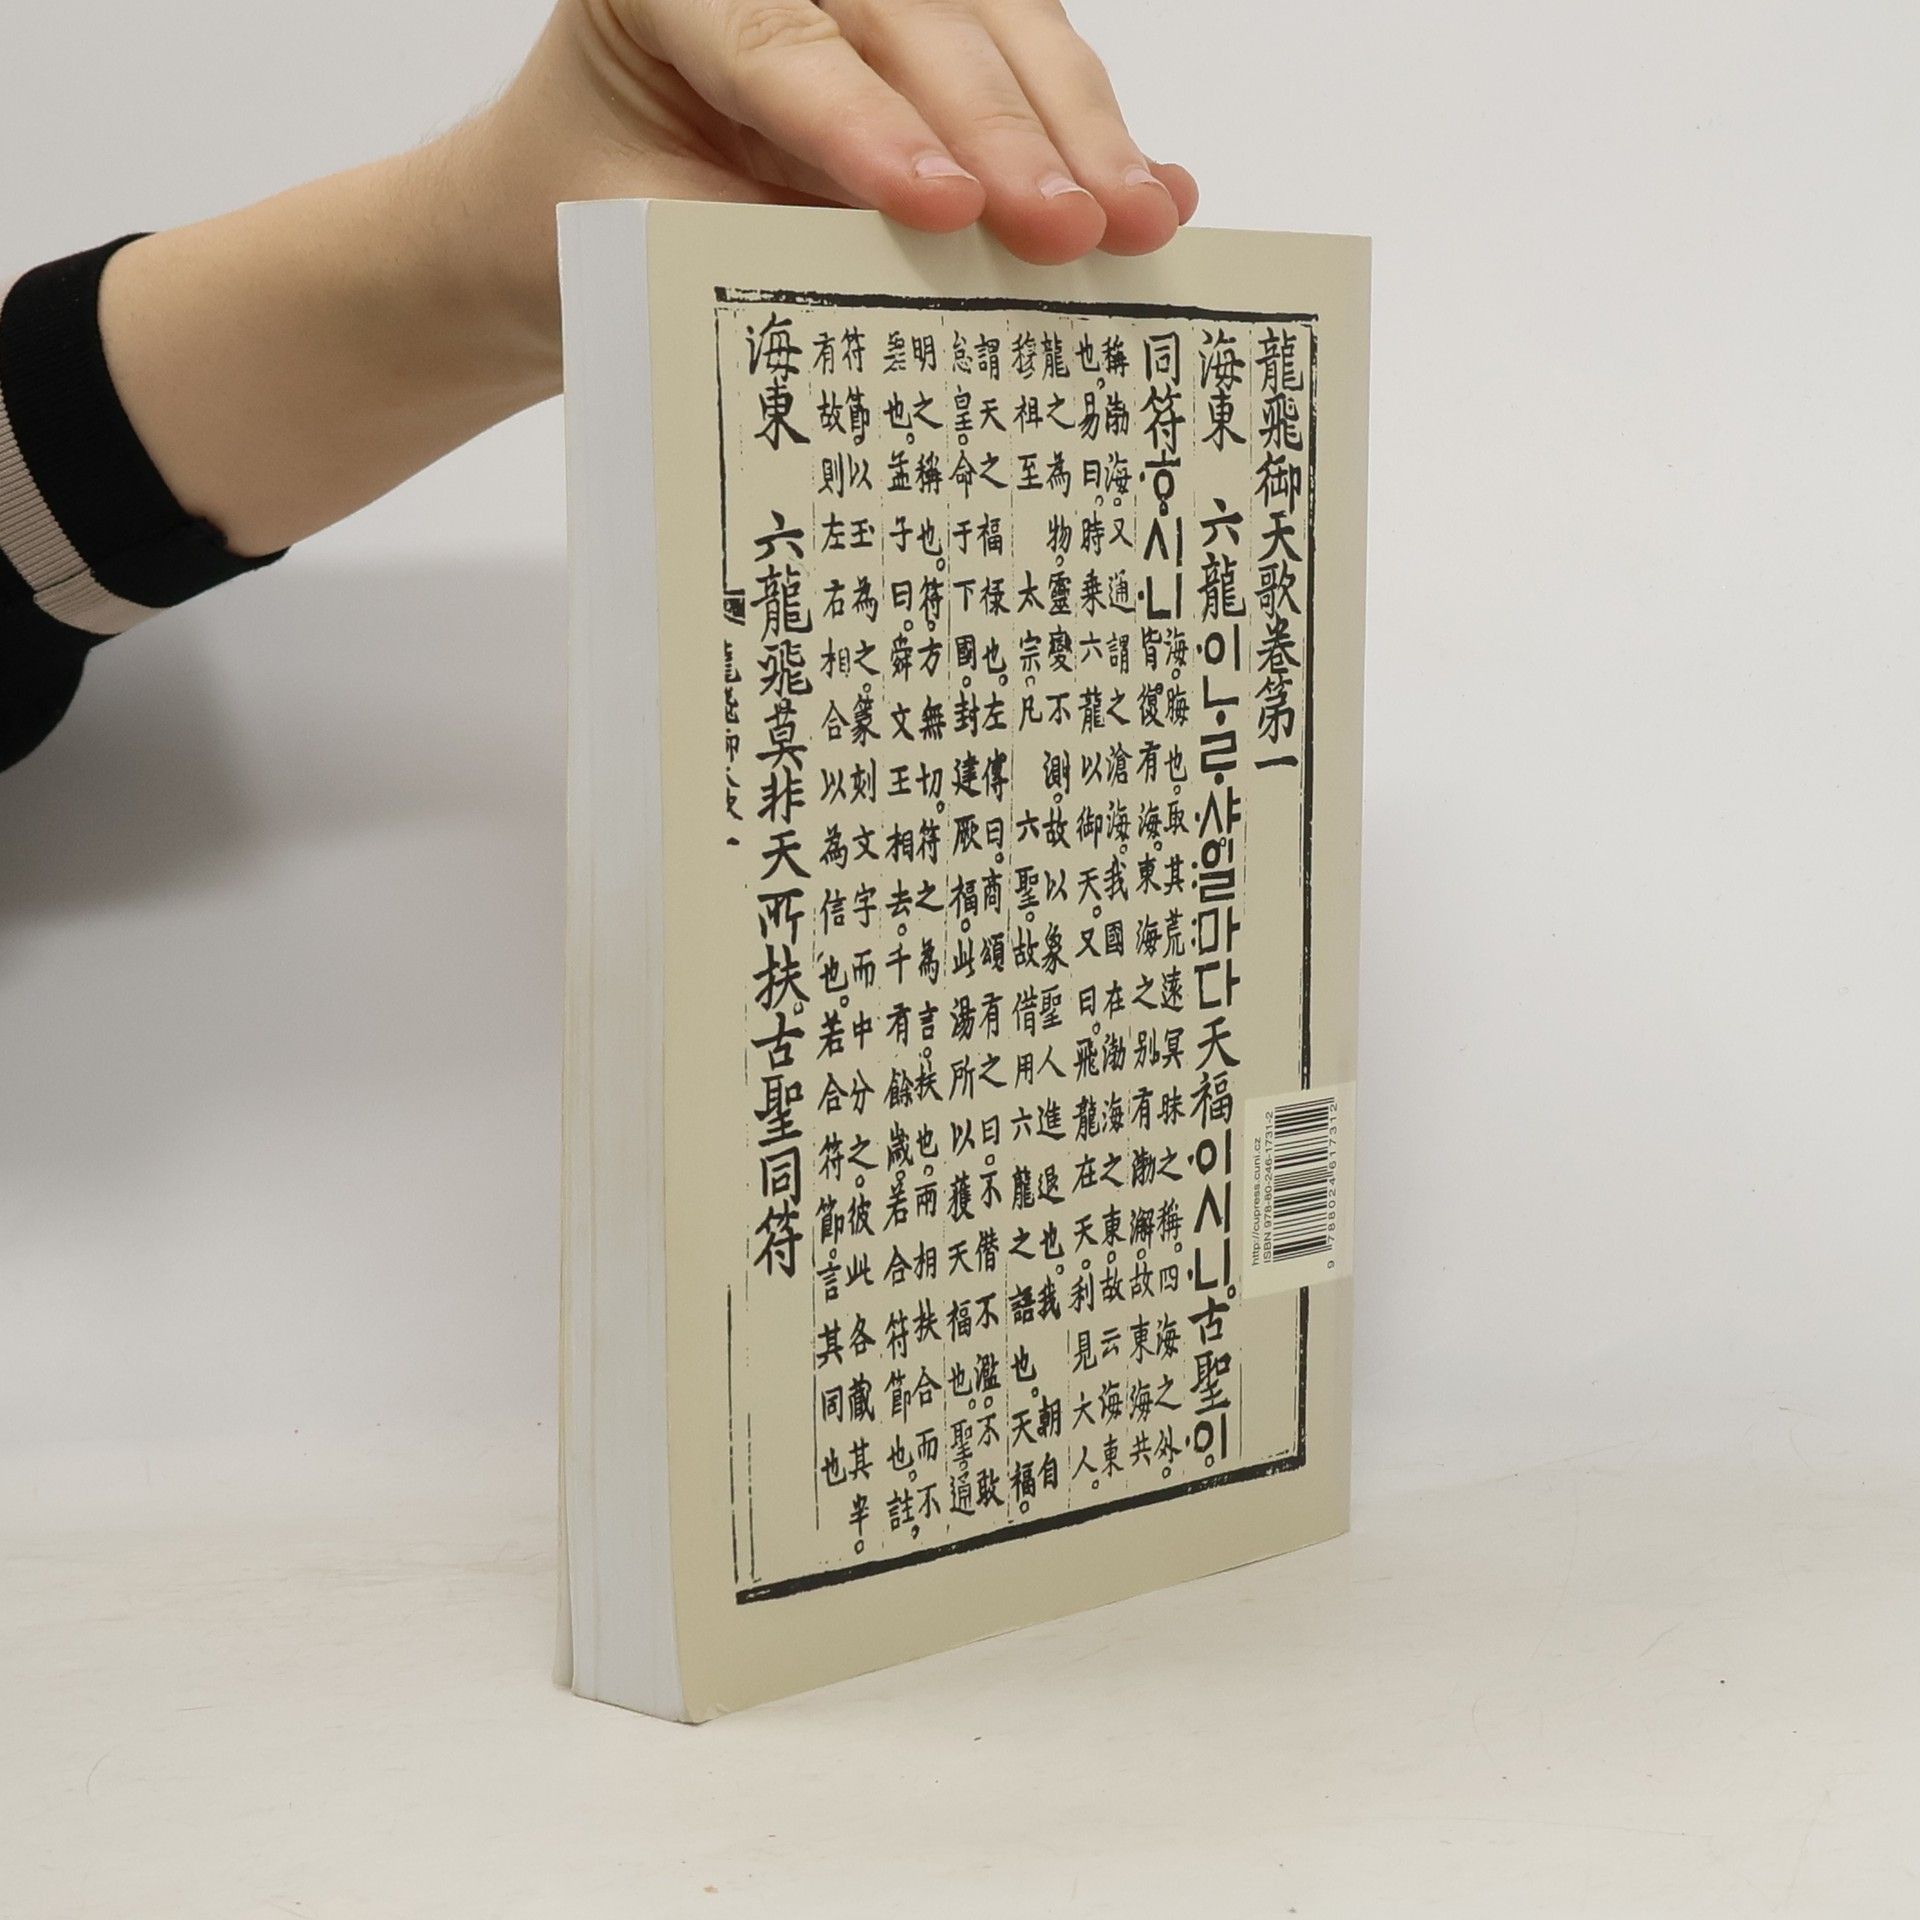 龍飛御天歌卷第一
海東 六龍이ᄂᆞᄅᆞ샤일마다天福이시니。古聖이。
同符ᄒᆞ시니
海。晦也。取其荒遠冥昧之稱。四海之外。
皆復有海。東海之別有渤澥。故東海共
稱渤海。又通謂之滄海。我國在渤海之東。故云海東
也。易曰。時乗六龍以御天。又曰。飛龍在天。利見大人。
龍之為物。靈變不測。故以象聖人進退也。我 朝自
穆祖至 太宗。凡 六聖。故借用六龍之語也。天福。
謂天之福禄也。左傳曰。商頌有之曰。不僭不濫。不敢
怠皇。命于下國。封建厥福。此湯所以獲天福也。聖。通
明之稱也。符。方無切。符之為言。扶也。兩相扶合而不
也。孟子曰。舜文王相去。千有餘歲。若合符節也。註。
符節。以玉為之。篆刻文字而中分之。彼此各藏其半。
有故則左右相合以為信也。若合符節。言其同也
海東 六龍飛莫非天所扶。古聖同符
http://cupress.cuni.cz
ISBN 978-80-246-1731-2
9 788024 617312